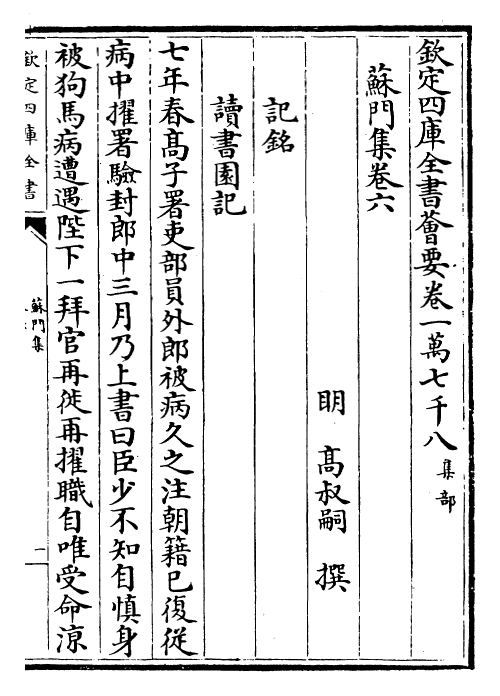 欽定四庫全書薈要卷一萬七千八 集部
蘇門集卷六
明 髙叔嗣 撰
記銘
讀書園記
七年春髙子署吏部員外郎被病久之注朝籍已復從
病中擢署驗封郎中三月乃上書曰臣少不知自慎身
被狗馬病遭遇陛下一拜官再徙再擢職自唯受命涼
欽定四庫全書
蘇門集
一